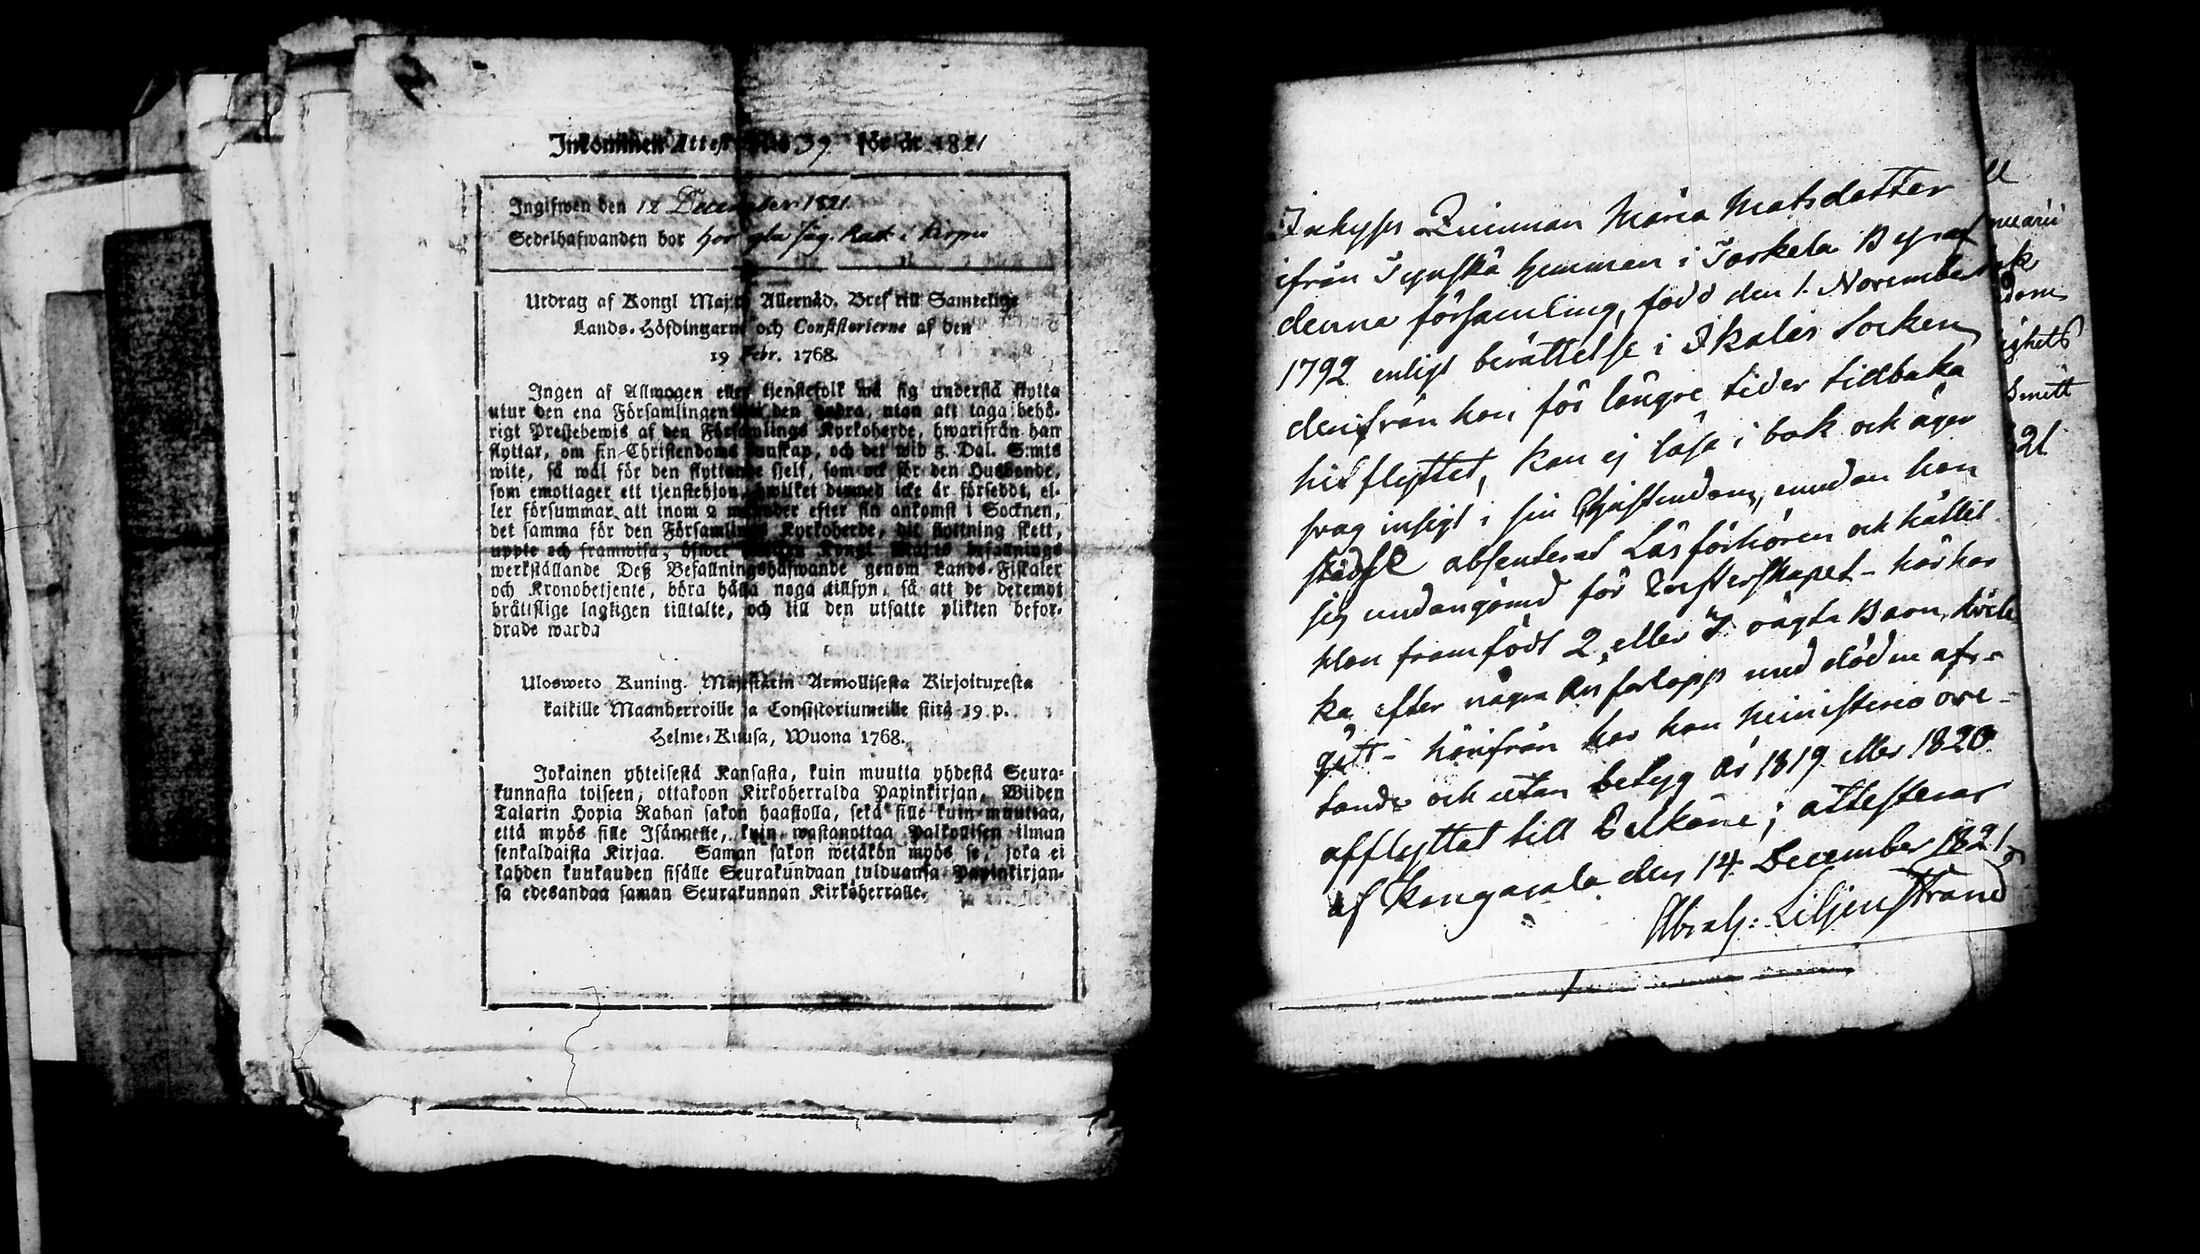 Inkommen Attest No 39 för år 1821
Ingifwen den 18 December 1821
Sedelhafwanden bor hos gla Säg. Katt i Kirpu
Utdrag af Kongl Maj:ts Allernåd. Bref till Samtelige
Lands-Höfdingarne och Consistorierne af den
19 Febr. 1768.
Ingen af Allmogen eller tjenstefolk må sig understå flytta
utur den ena Församlingen till den andra, utan att taga behö-
rigt Prestebewis af den Församlings Kyrkoherde, hwarifrån han
flyttar, om sin Christendoms kunskap, och det wid 5. Dal. S:mts
wite, så wäl för den flyttande sjelf, som ock för den Husbonde,
som emottager ett tjenstehjon, hwilket dermed icke är försedt, el-
ler försummar att inom 2 månader efter sin ankomst i Socknen,
det samma för den Församlings Kyrkoherde, dit flyttning skett,
uppte och framwisa; öfwer Kongl Maj:ts befallnings
werkställande Deß Befallningshafwande genom Lands-Fiskaler
och Kronobetjente, böra hålla noga tillsyn, så att de deremot
bråttslige lagligen tilltalte, och till den utsatte plikten befor-
drade warda
Ulosweto Kuning. Majestätin Armollisesta Kirjoituxesta
kaikille Maanherroille ja Consistoriumeille siitä 19 p.
Helme-Kuusa, Wuona 1768.
Jokainen yhteisestä Kansasta, kuin muutta yhdestä Seura-
kunnasta toiseen, ottakoon Kirkoherralda Papinkirjan, Wiiden
Talarin Hopia Rahan sakon haastolla, sekä sille kuin muuttaa,
että myös sille Isännelle, kuin wastanottaa Palkollisen ilman
senkaldaista Kirjaa. Saman sakon wetäkön myös se, joka ei
kahden kuukauden sisälle Seurakundaan tulduansa Papinkirjan-
sa edesandaa saman Seurakunnan Kirkoherralle.
Inhyses Qvinnan Maria Matsdotter
ifrån Tynskä hemman i Sorkela By af
denna församling, född den 1. November
1792 enligt berättelse i Ikalis Socken
denifrån hon för längre tider tillbaka
hitflyttet, kan ej läsa i bok och äger
svag insigt i sin Christendom, emedan hon
städse absenterat Läsförhören och hållit
sig undangömd för Presterskapet - här har
Hon framfödt 2 eller 3 oägta Barn, hvil-
ka efter några års förlopp med döden af-
gått - härifrån har hon Ministerio ove-
tande och utan betyg år 1819 eller 1820
afflyttat till Pelkäne; attesterar
af Kangasala den 14 December 1821
Abrah: Liljenstrand
ll
nuarii
dom
ighets
Smitt
821